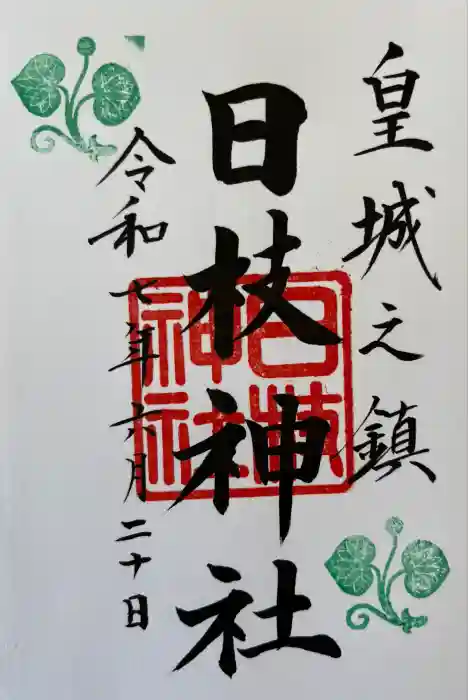 皇城之鎮
日枝神社
日枝神社
令和七年六月二十日